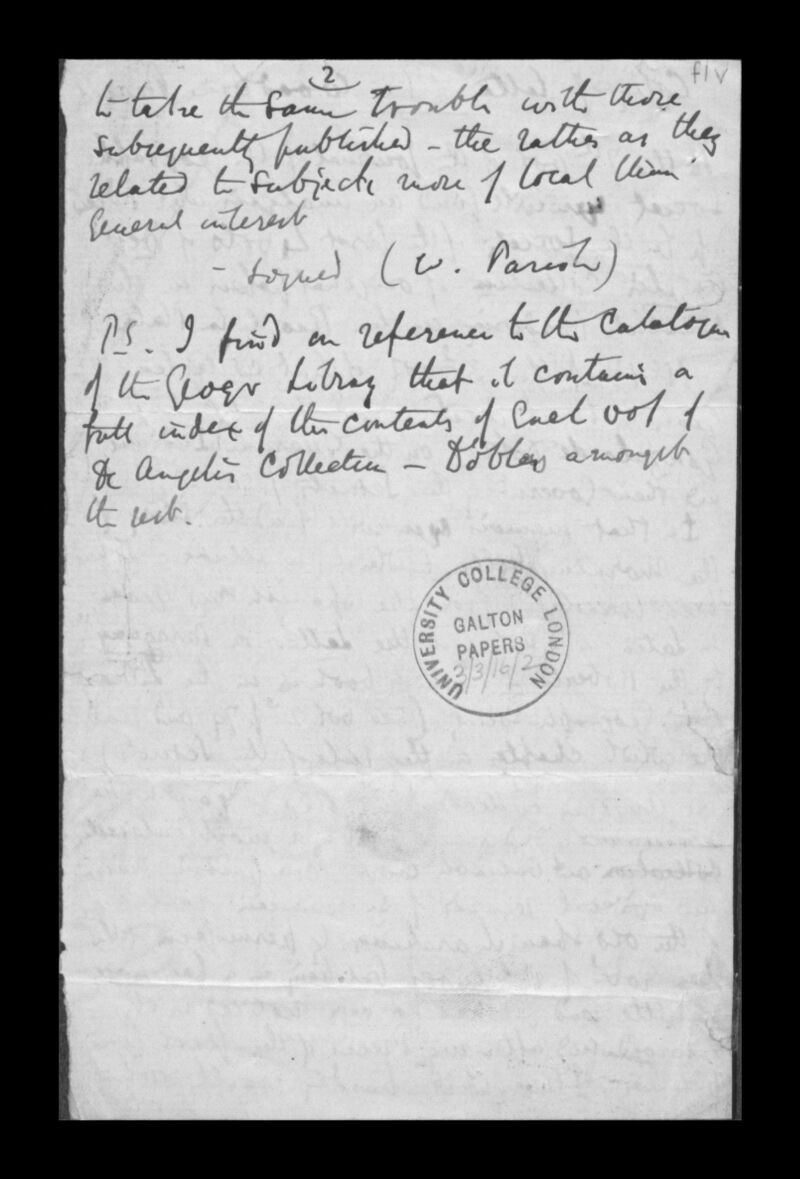 2
f1v
to take the same trouble with those
subsequently published - the rather as they
related to subjects more of local than
general interest
- signed (W. Parish)
PS. I find on reference to the Catalogue
of the Geogr Library that it contains a
full index of the contents of each vol of
De Angelis Collection - Doblas amongst
the rest.
UNIVERSITY COLLEGE LONDON
GALTON
PAPERS